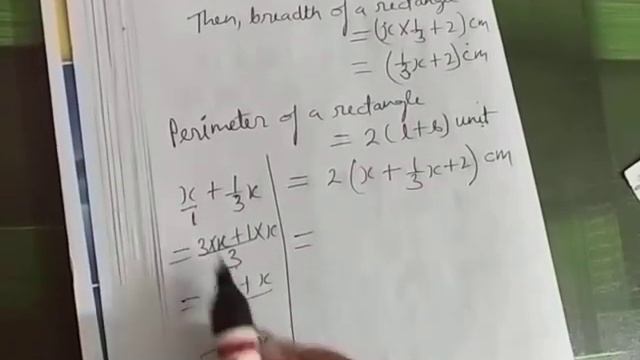 Then, breadth of a rectangle
= (x × 1/3 + 2) cm
= (1/3 x + 2) cm
Perimeter of a rectangle
= 2 (l + b) unit
= 2 (x + 1/3 x + 2) cm
x/1 + 1/3 x
= 3×x + 1×x / 3
=
= + x